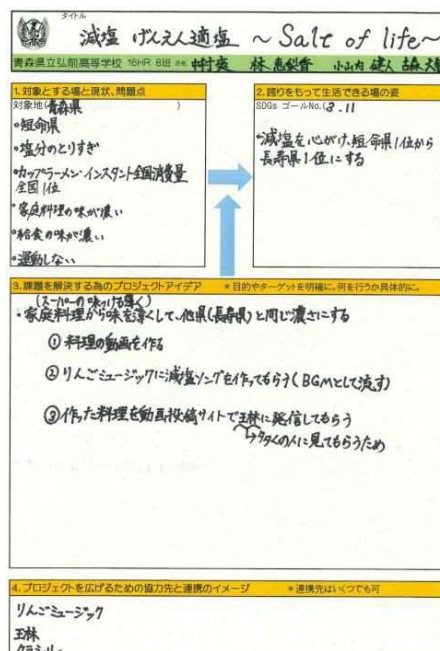 タイトル
減塩 げんえん適塩 ～Salt of life～
青森県立弘前高等学校 16HR 8班 氏名
1.対象とする場と現状、問題点
対象地(青森県 )
・短命県
・塩分のとりすぎ
・カップラーメン・インスタント全国消費量
全国1位
・家庭料理の味が濃い
・給食の味が濃い
・運動しない
2.誇りをもって生活できる場の姿
SDGs ゴールNo.(3.11
・減塩を心がけ、短命県1位から
長寿県1位にする
3.課題を解決する為のプロジェクトアイデア *目的やターゲットを明確に。何を行うか具体的に。
(スーパーの味つけも薄く)
・家庭料理から味を薄くして、他県(長寿県)と同じ濃さにする
①料理の動画を作る
②りんごミュージックに減塩ソングを作ってもらう(BGMとして流す)
③作った料理を動画投稿サイトで王林に発信してもらう
多くの人に見てもらうため
4.プロジェクトを広げるための協力先と連携のイメージ *連携先はいくつでも可
りんごミュージック
王林